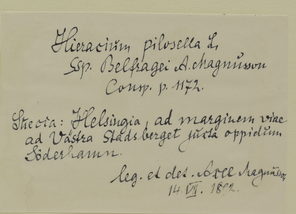 Hieracium pilosella L.
Ssp. Belfragei A. Magnusson
Comp. p. 1172.
Suecia: Helsingia, ad marginem viae
ad Västra Stads berget juxta oppidum
Söderhamn.
leg. et det. Axel Magnusson
14 VII. 1892.